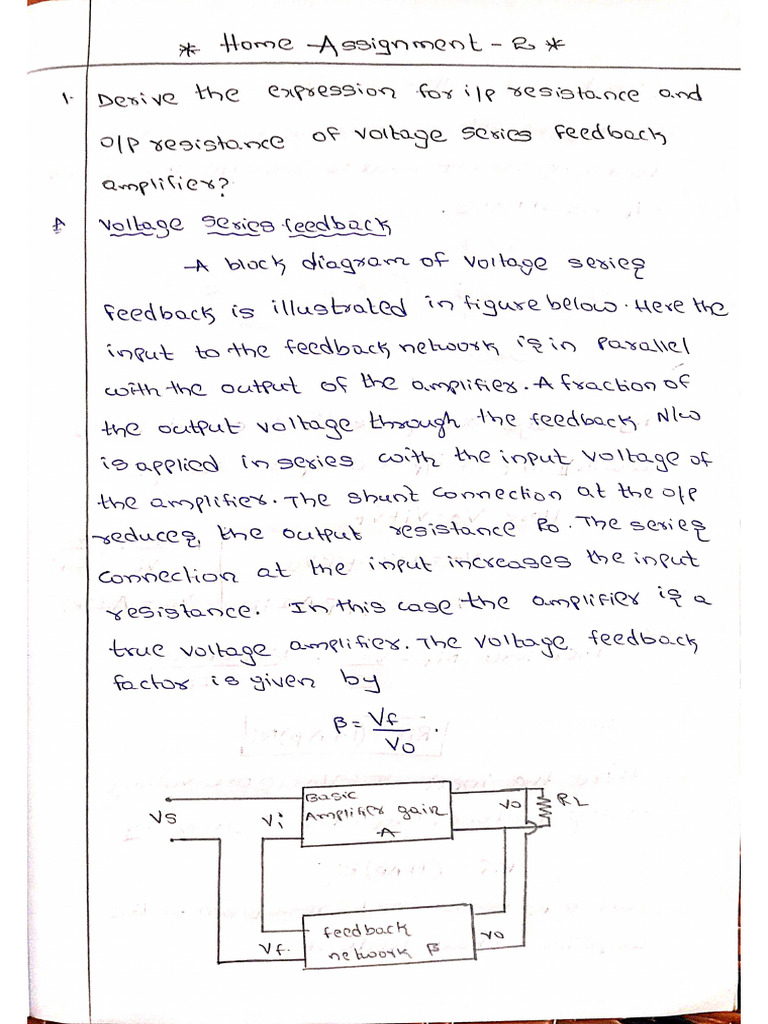 * Home Assignment - 2 *
1. Derive the expression for i/p resistance and
o/p resistance of voltage series feedback
amplifier?
A voltage series feedback
A block diagram of voltage series
feedback is illustrated in figure below. Here the
input to the feedback network is in parallel
with the output of the amplifier. A fraction of
the output voltage through the feedback N/w
is applied in series with the input voltage of
the amplifier. The shunt connection at the o/p
reduces, the output resistance Ro. The series
connection at the input increases the input
resistance. In this case the amplifier is a
true voltage amplifier. The voltage feedback
factor is given by
β = Vf/Vo.
Basic
Vo RL
Vs Vi Amplifier gain
A
feedback
Vf. Vo
network β